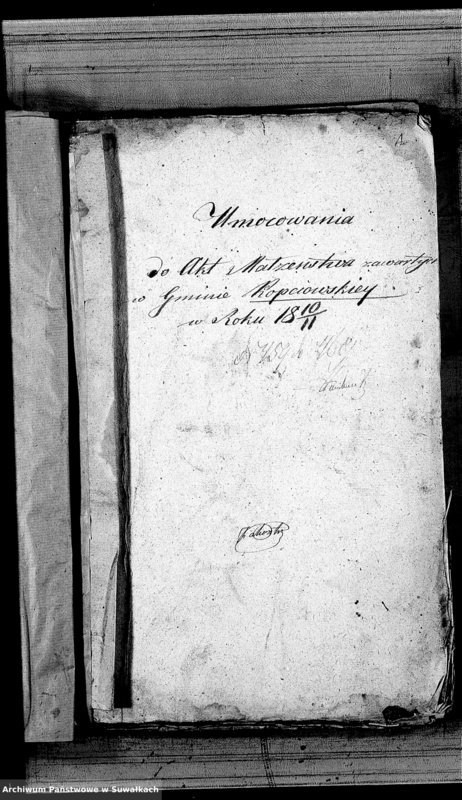 Umocowania
do Akt Małżenstwa zawartych
w Gminie Kopciowskiey
w Roku 18 10/11
Archiwum Państwowe w Suwałkach